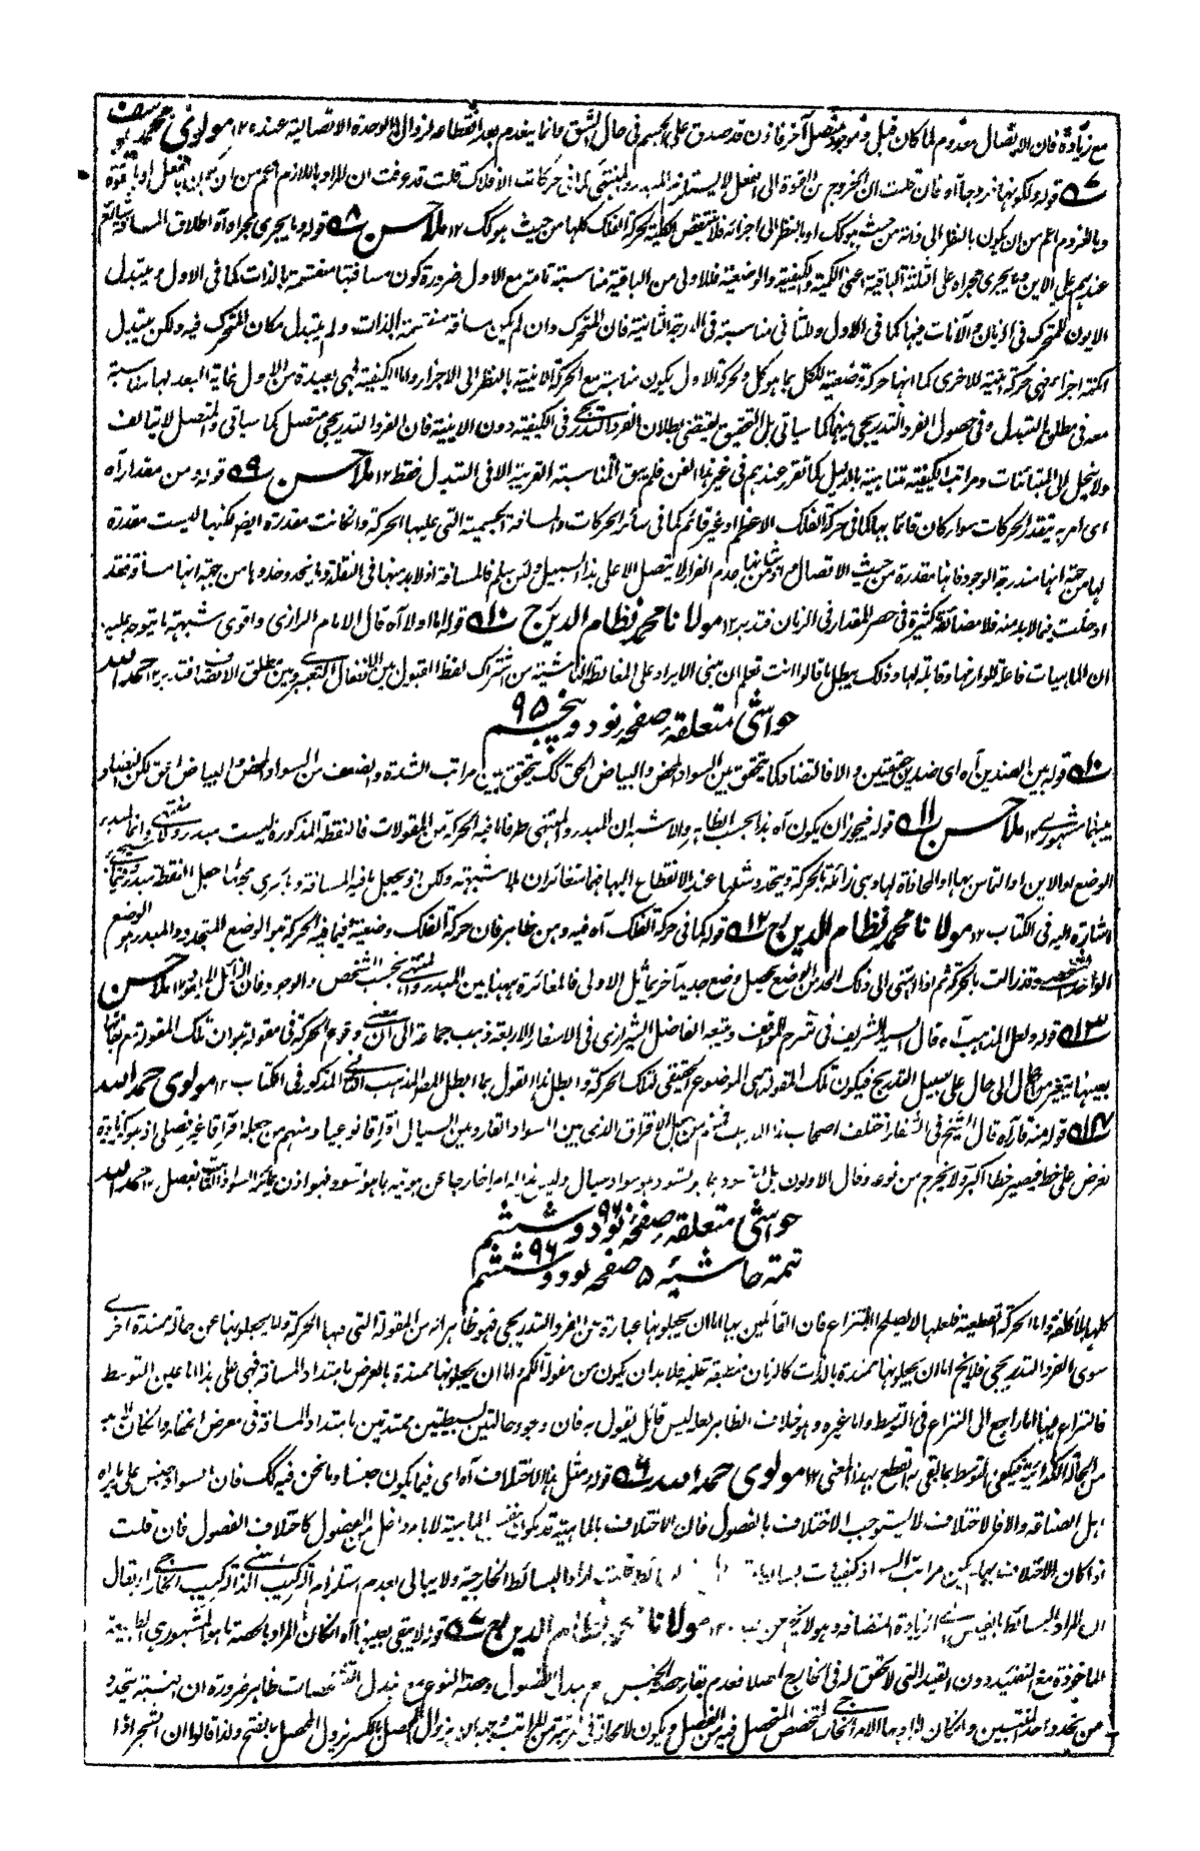 مع زيادة فان الاتصال معدوم لما كان قبل وموجود متصل آخر فاذن قد صدق على الجسم في حال الشق وانما ينعدم بعد انقطاعه لزوال الوحدة الاتصالية عنده ١٢ مولوي محمد يوسف
٧ قوله ولكونها خروجا آه فان قلت ان الخروج من القوة الى الفعل لا يستلزم المبدء والمنتهى لما في حركات الافلاك قلت قد عرفت ان المراد باللازم اعم من ان يكون بالفعل او بالقوة
وباللزوم اعم من ان يكون بالنظر الى ذاته من حيث هو كك او بالنظر الى اجزائه فلا تنتقض الكلية بحركة الفلك كلها من حيث هو كك ١٢ ملا حسن ٨ قوله وما يجري مجراه آه اطلاق المسافة شائع
عندهم على الاين وما يجري مجراه على الثلثة الباقية اعني الكمية والكيفية والوضعية فللاولى من الباقية مناسبة تامة مع الاول ضرورة كون مسافتها منقسمة بالذات كما في الاول ويتبدل
الايون للمتحرك في الزمان والآنات فيها كما في الاول وللثاني مناسبة في الدرجة الثانية فان المتحرك وان لم يكن مسافة منقسمة بالذات ولم يتبدل مكان المتحرك فيه ولكن يتبدل
امكنة اجزائه فهي حركة اينية للاخرى كما انها حركة وضعية للكل بما هو كل والحركة الاول يكون مناسبة مع الحركة الاينية بالنظر الى الاجزاء واما الكيفية فهي بعيدة من الاول غاية البعد لها مناسبة
معه في مطلق التبدل وفي حصول الفرد التدريجي بينهما كما سيأتي بل التحقيق يقتضي بطلان الفرد التدريجي في الكيفية دون الاينية فان الفرد التدريجي متصل كما سيأتي والمتصل لا يتألف
ولا ينحل الى المتبائنات ومراتب الكيفية متباينة بالدليل كما تقرر عندهم في غير هذا الفن فلم يبق المناسبة القريبة الا في التبدل فقط ١٢ ملا حسن ٩ قوله ومن مقدار آه
اى امر به يتقدر الحركات سواء كان قائما بها كما في حركة الفلك الاعظم او غير قائم كما في سائر الحركات والمسافة الجسمية التي عليها الحركة وان كانت مقدرة ايضا لكنها ليست مقدرة
لها من جهة انها متدرجة الوجود فانها مقدرة من حيث الاتصال
او دخلت فيما لابد منه فلا مضائقة كثيرة في حصر المقدار في الزمان فتدبر ١٢ مولانا محمد نظام الدين رح ١٠ قوله اما اولا آه قال الامام الرازي واقوى شبهة ما يتوجه عليه
ان الماهيات فاعلة للوازمها وقابلة لها وذلك يبطل ما قالوا انت تعلم ان مبنى الايراد على المغالطة الناشئة من اشتراك لفظ القبول بين الانفعال التجددي وبين مطلق الاتصاف فتدبر ١٢ حمد الله
حواشي متعلقه صفحه نود و پنجم ٩٥
١٠ قوله بين الضدين آه اى ضدين حقيقيين والا فالتضاد كما يتحقق بين السواد المحض والبياض المحق كك يتحقق بين مراتب الشدة والضعف من السواد المحض والبياض المحق لكن التضاد
بينهما مشهوري ١٢ ملا حسن ١١ قوله فيجوز ان يكون آه هذا بحسب الظاهر والاشبه ان المبدء والمنتهى طرفا ما فيه الحركة من المقولات فالنقطة المذكورة ليست مبدء ولا منتهى وانما المبدء
الوضع او الاين او التماس بها او المحاذاة لها وهي زائلة بالحركة ويتحدد مثلها عند الانقطاع اليها فهما متغائران بلا شبهة ولكن اذ يجعل ما فيه المسافة وما يجري مجراها جعل النقطة مبدء ومنتهى
اشارة اليه في الكتاب ١٢ مولانا محمد نظام الدين رح ١٢ قوله كما في حركة الفلك آه فيه وهن ظاهر فان حركة الفلك وضعية فما فيه الحركة هو الوضع المتجدد والمبدء هو الوضع
الواحد الشخصي وقد زالت بالحركة ثم اذا انتهى الى ذلك الحد من الوضع يحصل وضع جديد آخر يماثل الاولى فالمغائرة بينهما بين المبدء والمنتهى بحسب الشخص والوجود فان الزائل لا يعود ١٢ ملا حسن
١٣ قوله ولعل المذهب آه قال السيد الشريف في شرح المواقف وتبعه الفاضل الشيرازي في الاسفار الاربعة ذهب جماعة الى ان معنى وقوع الحركة في مقولة هو ان تلك المقولة مع بقائها
بعينها يتغير من حال الى حال على سبيل التدريج فيكون تلك المقولة هي الموضوع الحقيقي لتلك الحركة وابطل هذا القول بما ابطل به المذهب الثاني المذكور في الكتاب ١٢ مولوي حمد الله
١٤ قوله منه قار آه قال الشيخ في الشفاء اختلف اصحاب هذا المذهب فمنهم من جعل الافتراق الذي بين السواد القار وبين السيال افتراقا نوعيا ومنهم من جعله افتراقا غير فصلي اذ هو كزيادة
تعرض على خط فيصير خطا اكبر ولا يخرج من نوعه وقال الاولون بل
حواشي متعلقه صفحه نود و ششم ٩٦
تتمه حاشيهٔ ٥ صفحه نود و ششم ٩٦
كلها بالاتفاق واما الحركة القطعية فلعلها لا يصلح النزاع فان القائلين بها اما ان يجعلونها عبارة عن الفرد التدريجي فهو ظاهر انه من المقولة التي فيها الحركة واما يجعلونها عن حالة ممتدة اخرى
سوى الفرد التدريجي فلا يخ اما ان يجعلونها ممتدة بالذات كالزمان منطبقة عليه فلابد ان يكون من مقولة الكم واما ان يجعلونها ممتدة بالعرض بامتداد المسافة فهي على هذا اما عين التوسط
فالنزاع فيها اما راجع الى النزاع في التوسط واما غيره وهو خلاف الظاهر لعله ليس قائل يقول به فان وجود حالتين بسيطتين ممتدتين بامتداد المسافة في معرض الخفاء وان كان لابد
من الحالة الكذائية فيكفي التوسط بما بقي به القطع بهذا المعنى ١٢ مولوي حمد الله ٦ قوله مثل هذا الاختلاف آه اى فيما يكون جنسا وما نحن فيه كك فان السواد جنس على ما يراه
اهل الصناعة والا فالاختلاف لا يستوجب الاختلاف بالفصول فان الاختلاف بالماهية قد يكون بنفس الماهية لا بامر داخل من الفصول كاختلاف الفصول فان قلت
اذا كان الاختلاف بها يكون مراتب السواد كيفيات بسيطة قلت المراد البسائط الخارجية ولا يبالى بعدم استلزام التركيب الذهني التركيب الخارجي او يقال
ان المراد البسائط بالقياس الى الزيادة المتضافة وهو لا يخ من بعد ١٢ مولانا محمد نظام الدين رح ٧ قوله لا يبقى بعينها آه ان كان المراد بالحصة ما هو المشهور اى الطبيعة
الماخوذة مع التقييد دون القيد التي لا تحقق له في الخارج اصلا فعدم بقاء حصة الجنس مع تبدل الفصول وحصة النوع مع تبدل التشخصات ظاهر ضرورة ان النسبة يتجدد
من تجدد احد المنتسبين وان كان المراد بها الامر الخارجي المتخصص المتحصل فيه من الفصل ويكون لا محالة في مرتبة من المراتب وجه الاينية زوال المحصل بالكسر يزول المحصل بالفتح ولذا قالوا ان الشجر اذا